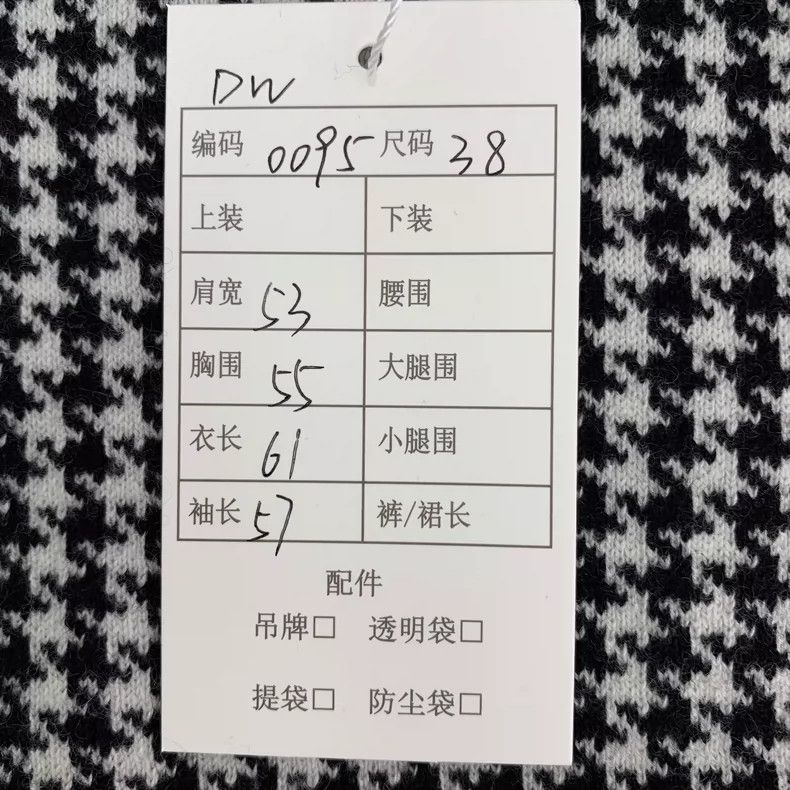 DW
编码 0095 尺码 38
上装 下装
肩宽 53 腰围
胸围 55 大腿围
衣长 61 小腿围
袖长 57 裤/裙长
配件
吊牌□ 透明袋□
提袋□ 防尘袋□